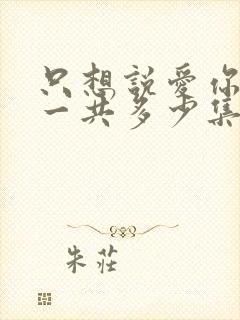 只想説愛你
一共多少集
朱莊